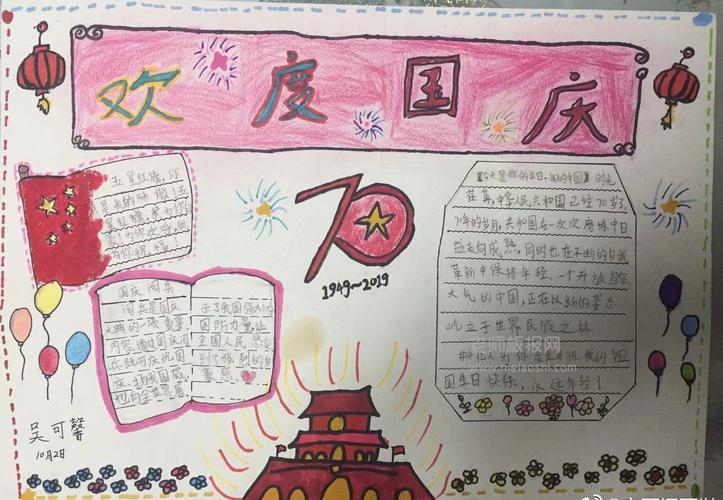 欢度国庆
五星红旗，你
是我的骄傲！五
星红旗，我为你
为你祝福！
《今天是你的生日，我的中国》时光
荏苒，中华人民共和国已经70岁了，
70年的岁月，共和国在一次次磨练中日
益走向成熟，同时也在不断的自我
革新中保持年轻。一个开放
大气的中国，正在以新的姿态
屹立于世界民族之林
祖
国生日快乐，永远年轻！
70
1949~2019
国庆阅兵
阅兵是国庆
大典的一项重要
内容，通过国庆阅
兵既可庆祝国
庆，扬我国威
也向全世界展
示了我国强大的
国防力量，让
全国人民感受
到了强烈的自
豪感
吴可馨
10月2日
老师板报网
www.nielaoshi.com